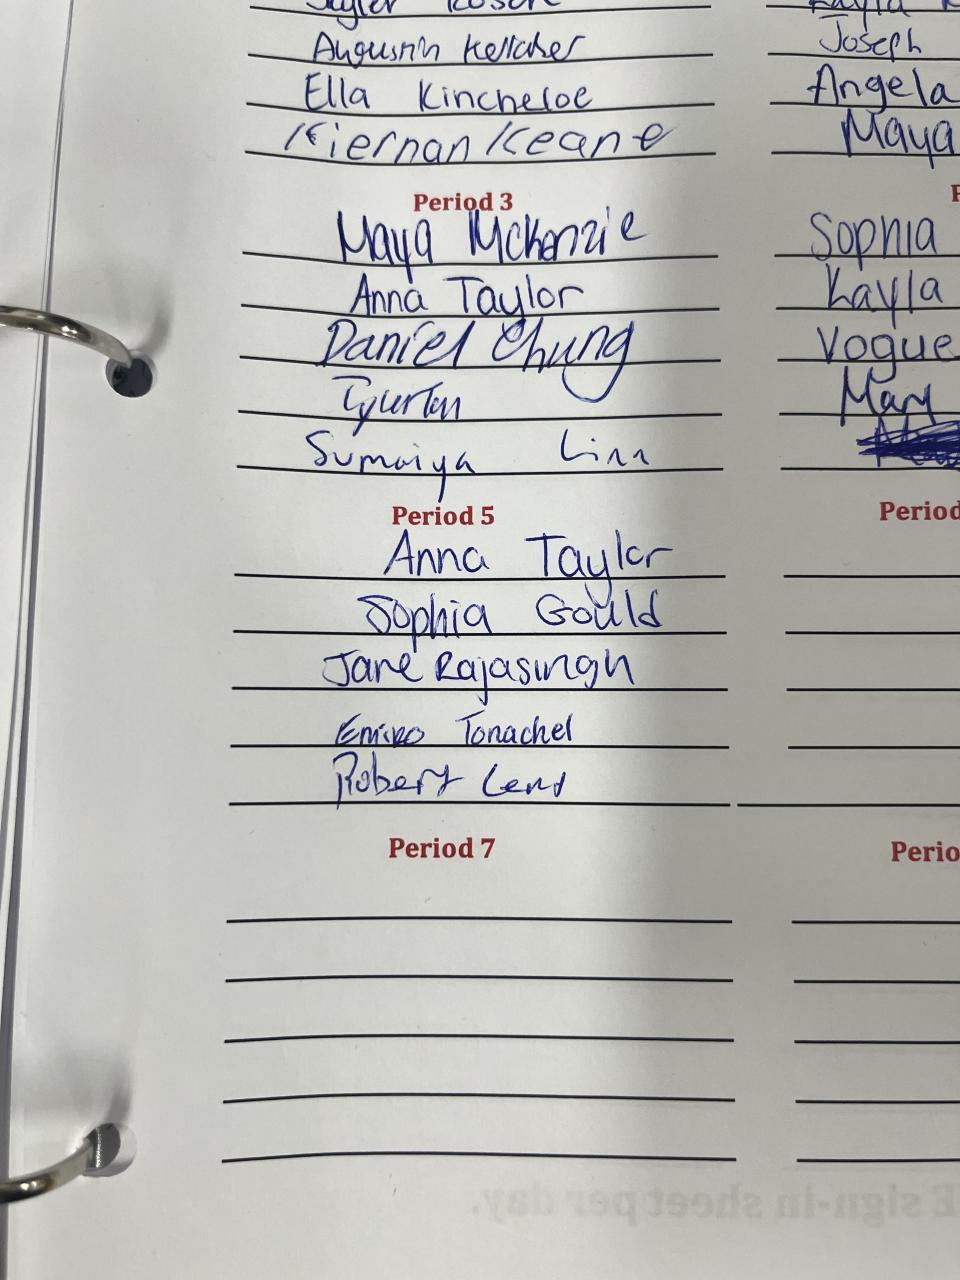 Kosch
Augustin Kelleher
Joseph
Ella Kincheloe
Angela
Kiernan Keane
Maya
Period 3
Maya McKenzie
Sophia
Anna Taylor
Kayla
Daniel Chung
Vogue
Mary
Sumaiya Linn
Period 5
Period
Anna Taylor
Sophia Gould
Jane Rajasingh
Emiko Tonachel
Robert
Period 7
Perio
E sign-in sheet per day.